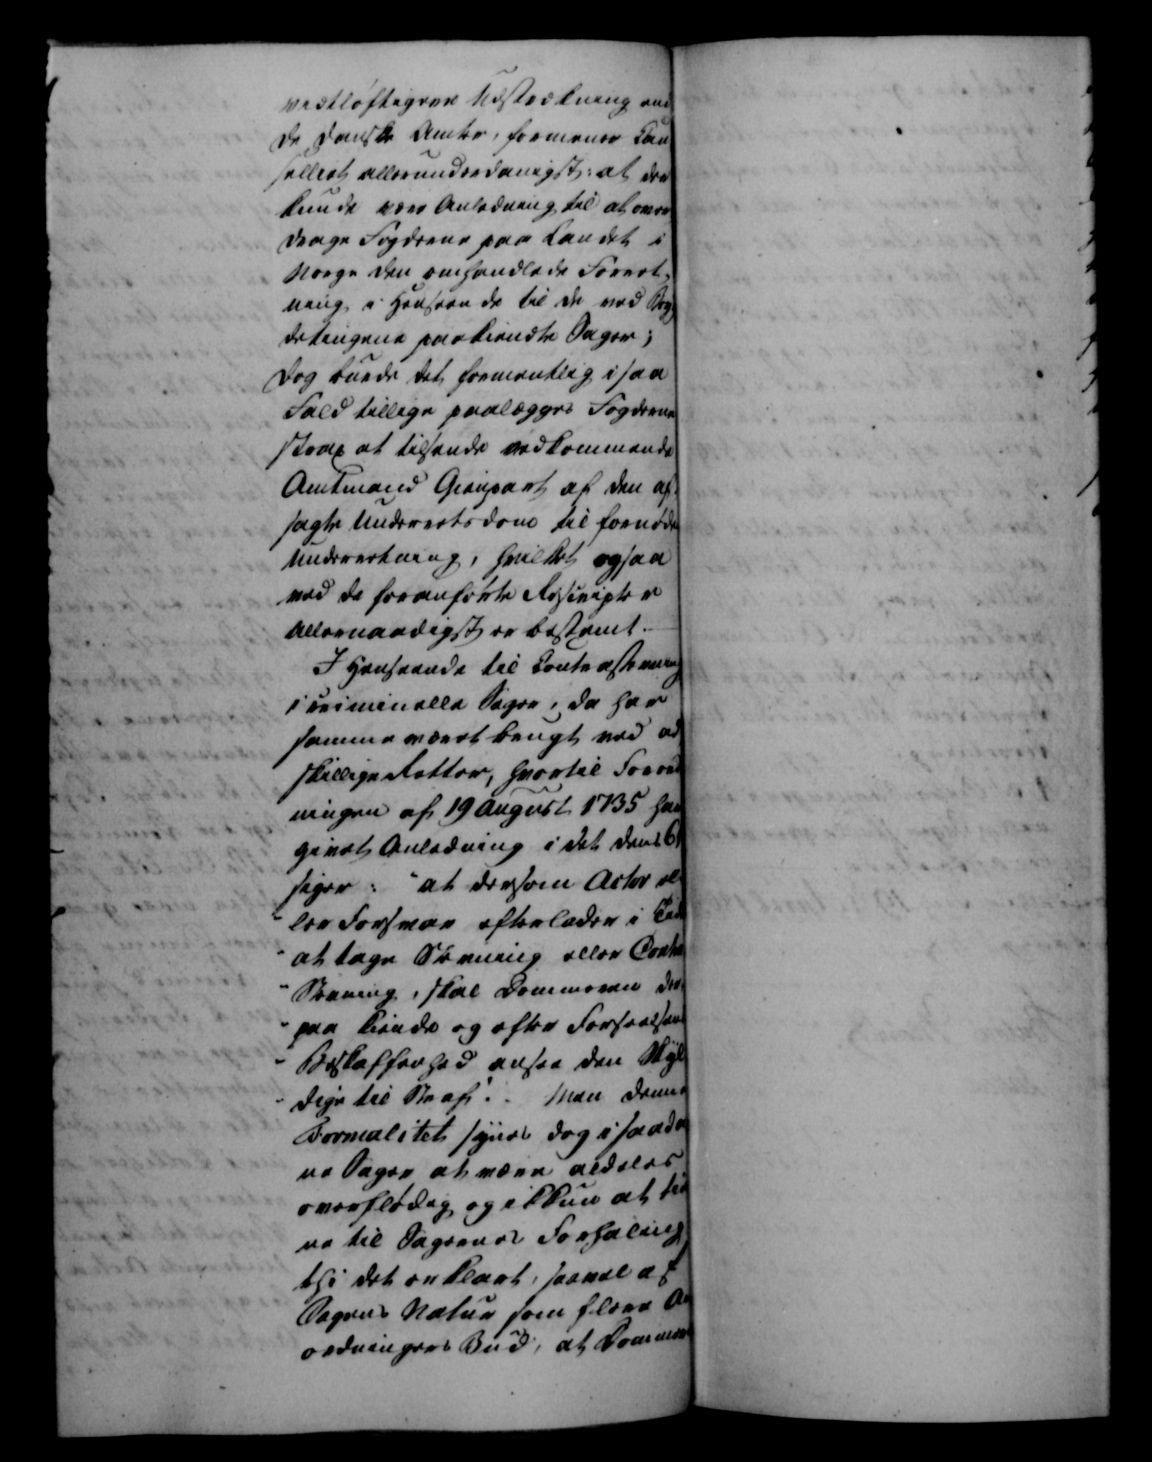 vidtløftigere Udstrækning end
de danske Amter, formener Can
celliet allerunderdanigst: at der
kunde være Anledning til at over
drage Fogderne paa Landet i
Norge den omhandlede Forret,
ning, i Henseende til de ved Byg
detingene paakiendte Sager;
dog burde det formentlig i saa
Fald tillige paalægges Fogderne
strax at tilsende vedkommende
Amtmand Gienpart af den af,
sagte Underretsdom til fornøden
Underretning, hvilket ogsaa
ved de foranførte Rescripter
allernaadigst er bestemt.
I Henseende til Contrastevning
i criminelle Sager, da har
samme været brugt ved ad
skillige Retter, hvortil Forord
ningen af 19 August 1735 har
givet Anledning i det dens 6§
siger: "at dersom Actor el
"ler Forsvar efterlader i Tide
"at tage Stevning eller Contra
"Stevning, skal Dommeren der
"paa kiende og efter Forseelsens
"Beskaffenhed ansee den Skyl
"dige til Straf". Men denne
Formalitet synes dog i saada
ne Sager at være aldeles
overflødig og ikkun at tie
ne til Sagernes Forhaling
thi det er klart, saavel af
Sagens Natur som flere An
ordningers Bud, at Dommer